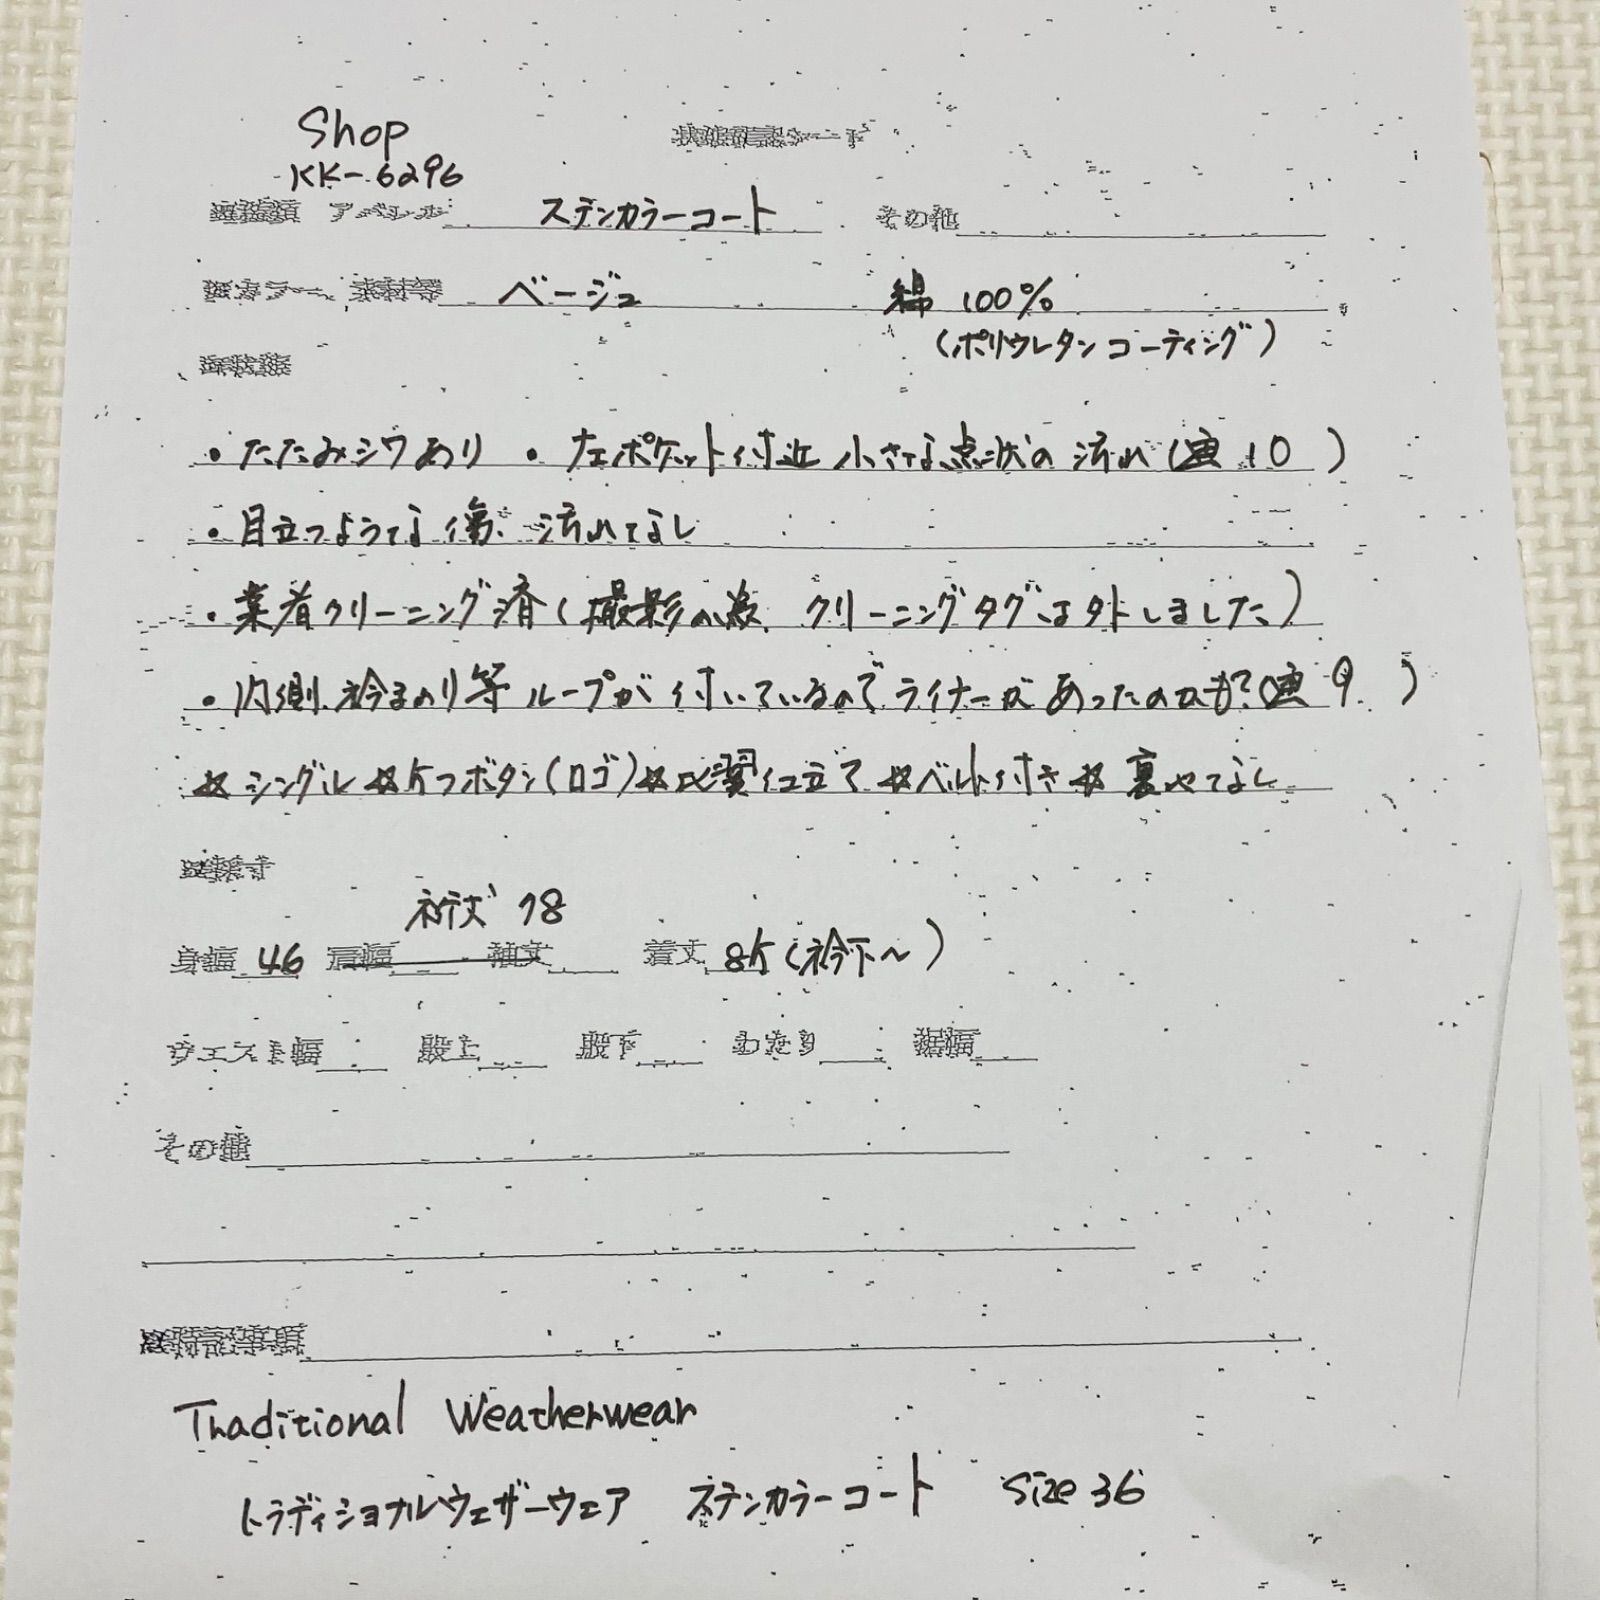 Shop 状態確認シート
KK-6296
アパレル ステンカラーコート その他
カラー、素材等 ベージュ 綿 100%
(ポリウレタンコーティング)
・たたみシワあり ・左ポケット付近 小さな点状の汚れ(画10)
・目立つような傷、汚れなし
・業者クリーニング済(撮影の際、クリーニングタグは外しました)
・内側、衿まわり等ループが付いているのでライナーがあったのかも?(画9)
☆シングル☆ケツボタン(ロゴ)☆比翼仕立て☆ベルト付き☆裏地なし
採寸
裄丈 78
身幅 46 肩幅 袖丈 着丈 85(衿下〜)
ウエスト幅 股上 股下 わたり 裾幅
その他
特記事項
Traditional Weatherwear
トラディショナルウェザーウェア ステンカラーコート Size 36